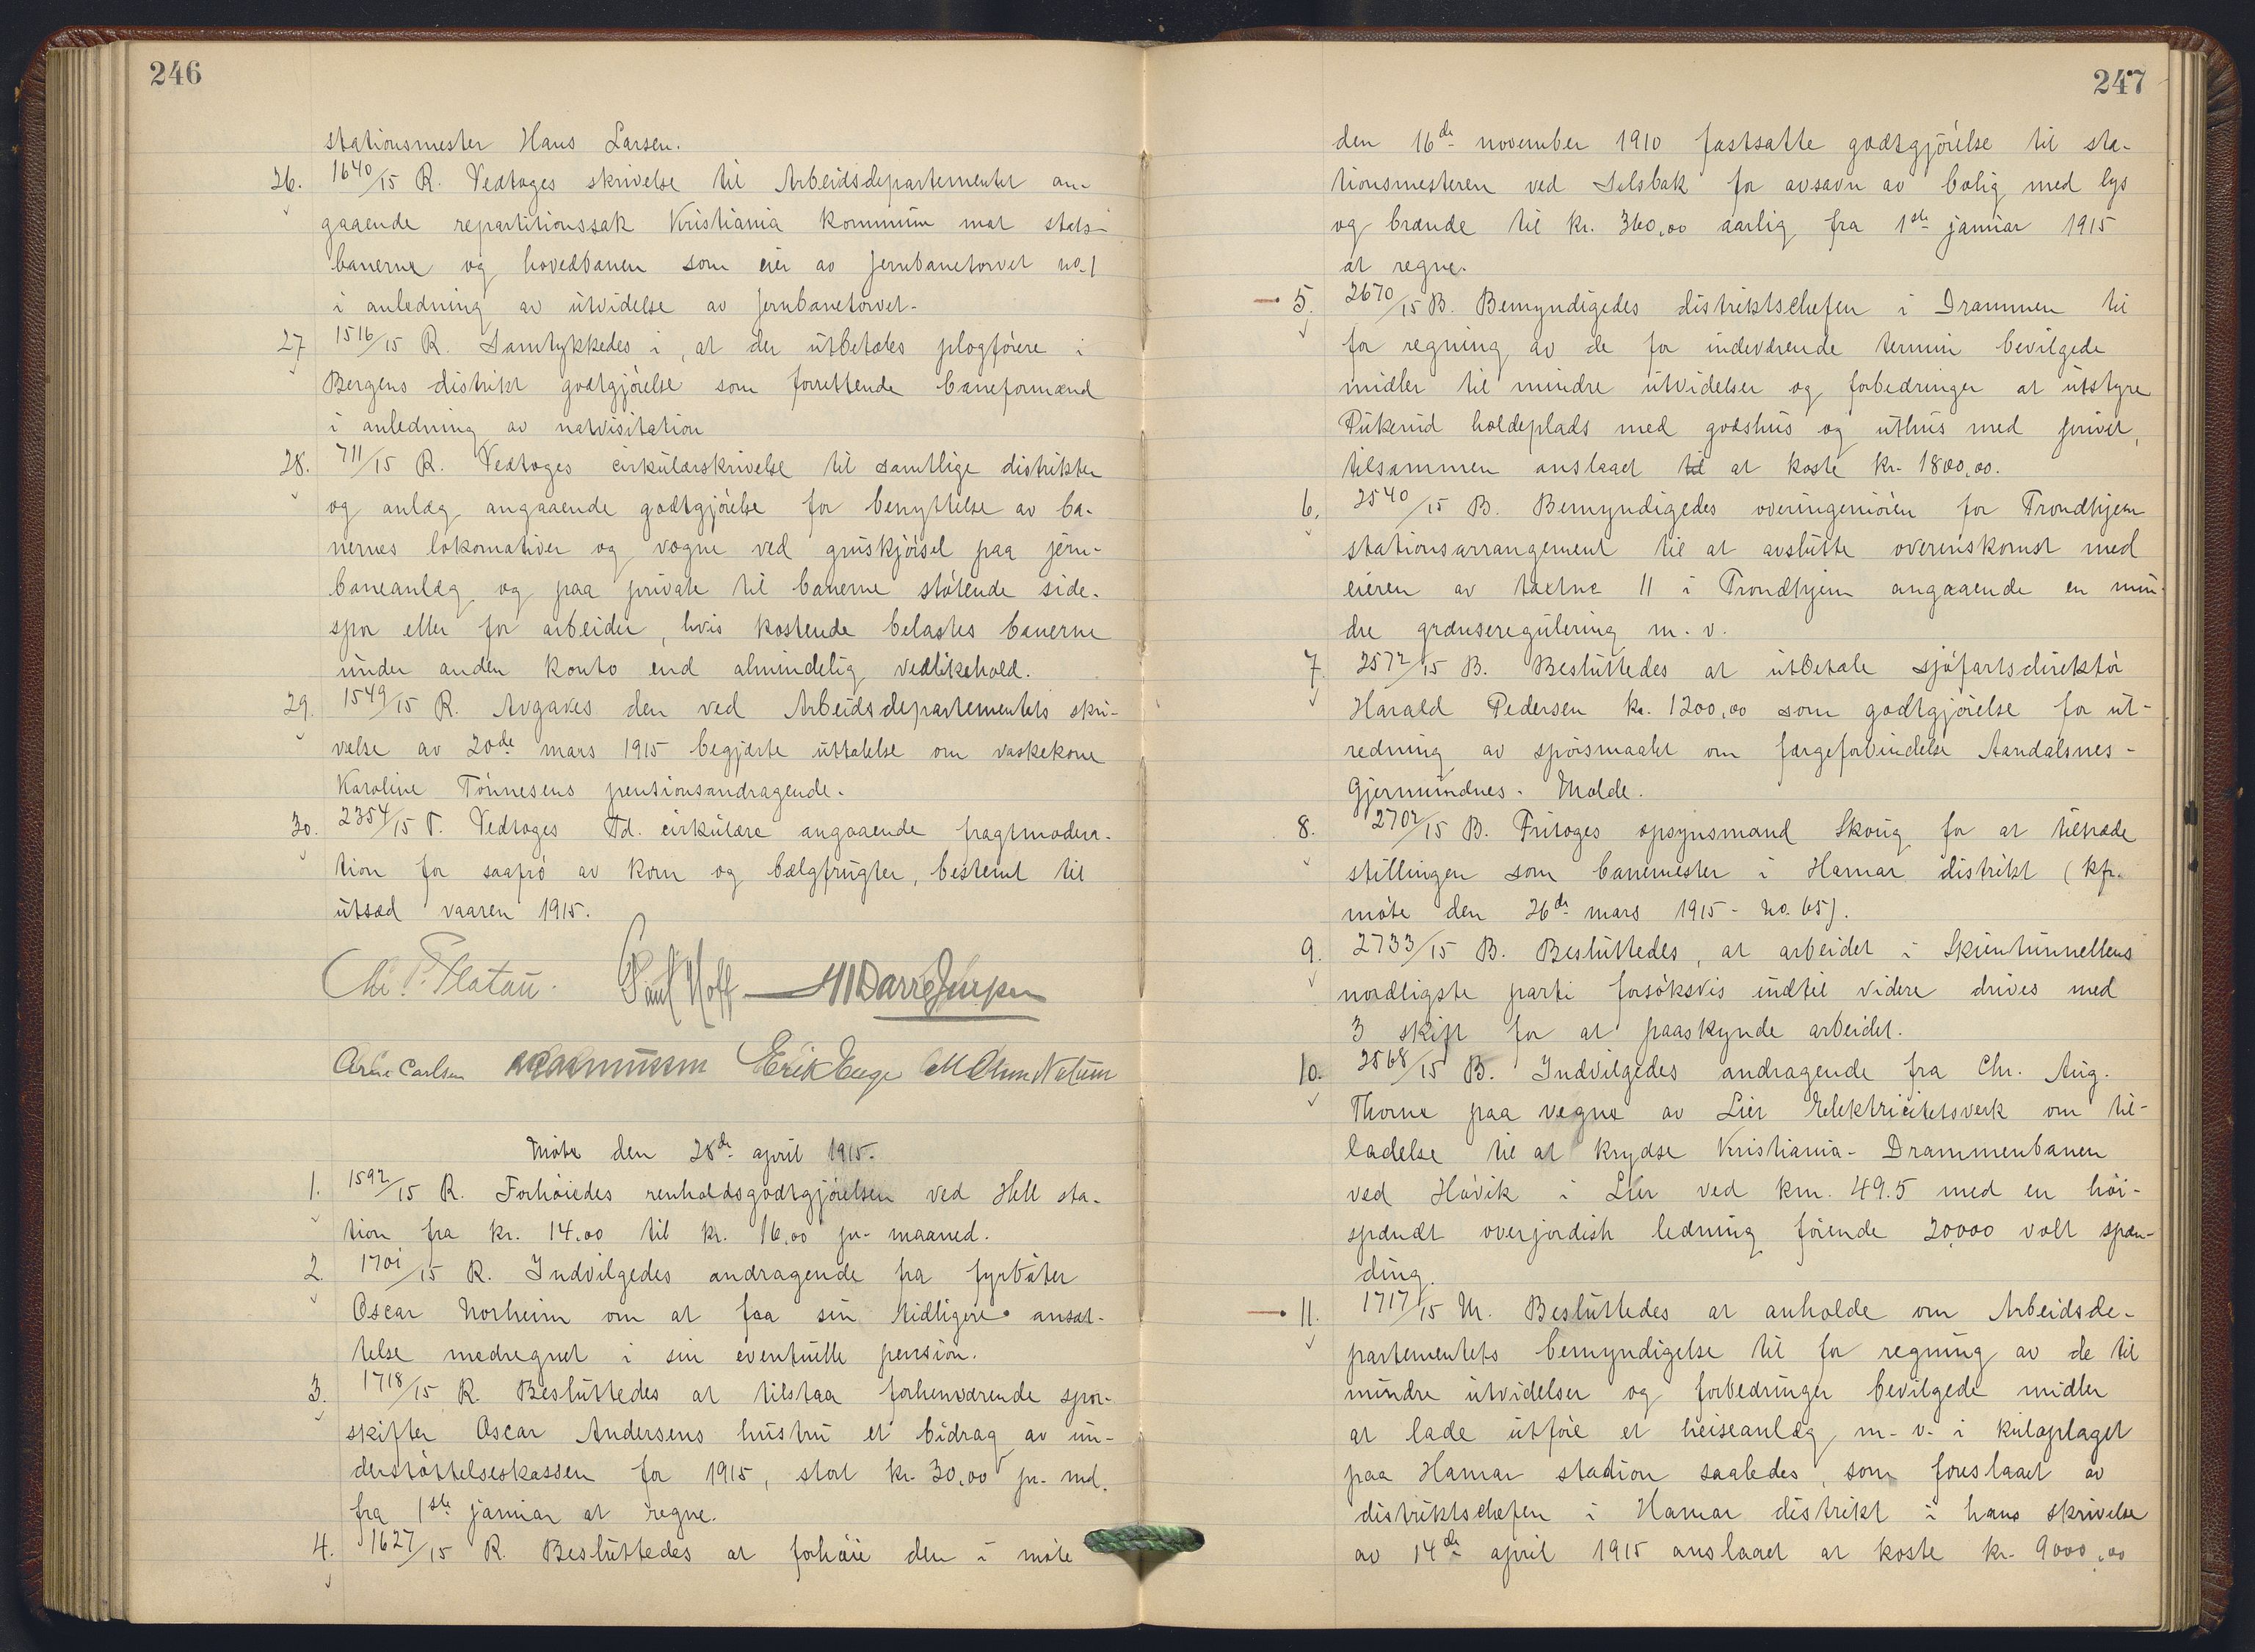 246
stationsmester Hans Larsen.
26. 1640/15 R. Vedtoges skrivelse til Arbeidsdepartementet an-
gaaende repartitionssak Kristiania kommune mot stats-
banerne og hovedbanen som eier av Jernbanetorvet no. 1
i anledning av utvidelse av Jernbanetorvet.
27 1516/15 R. Samtykkedes i, at der utbetales plogförere i
Bergens distrikt godtgjörelse som forrettende baneformænd
i anledning av natvisitation
28. 711/15 R. Vedtoges cirkulærskrivelse til samtlige distrikter
og anlæg angaaende godtgjörelse for benyttelse av ba-
nernes lokomotiver og vogne ved gruskjörsel paa jern-
baneanlæg og paa private til banerne stötende side-
spor eller for arbeider, hvis kostende belastes banerne
under anden konto end almindelig vedlikehold.
29. 1549/15 R. Avgaves den ved Arbeidsdepartementets skri-
velse av 20de mars 1915 begjærte uttalelse om vaskekone
Karoline Tönnesens pensionsandragende.
30. 2354/15 T. Vedtoges Td. cirkulære angaaende fragtmodera-
tion for saafrö av korn og bælgfrugter, bestemt til
utsæd vaaren 1915.
Chr. P. Platou. Paul Hoff
Arne Carlsen
Möte den 28de april 1915.
1. 1592/15 R. Forhöiedes renholdsgodtgjörelsen ved Hell sta-
tion fra kr. 14.00 til kr. 16.00 pr. maaned.
2. 1701/15 R. Indvilgedes andragende fra fyrböter
Oscar Norheim om at faa sin tidligere ansæt-
telse medregnet i sin eventuelle pension.
3. 1718/15 R. Besluttedes at tilstaa forhenværende spor-
skifter Oscar Andersens hustru et bidrag av un-
derstöttelseskassen for 1915, stort kr. 30.00 pr. md.
fra 1ste januar at regne.
4. 1627/15 R. Besluttedes at forhöie den i möte
247
den 16de november 1910 fastsatte godtgjörelse til sta-
tionsmesteren ved Selsbak for avsavn av bolig med lys
og brænde til kr. 360.00 aarlig fra 1ste januar 1915
at regne.
5. 2670/15 B. Bemyndigedes distriktschefen i Drammen til
for regning av de for indeværende termin bevilgede
midler til mindre utvidelser og forbedringer at utstyre
Pukerud holdeplads med godshus og uthus med privet,
tilsammen anslaaet til at koste kr. 1800.00.
6. 2540/15 B. Bemyndigedes overingeniören for Trondhjem
stationsarrangement til at avslutte overenskomst med
eieren av taxtno 11 i Trondhjem angaaende en min-
dre grænseregulering m. v.
7 2572/15 B. Besluttedes at utbetale sjöfartsdirektör
Harald Pedersen kr. 1200.00 som godtgjörelse for ut-
redning av spörsmaalet om færgeforbindelse Aandalsnes-
Gjermundnes - Molde.
8. 2702/15 B. Fritoges opsynsmand Skoug for at tiltræde
stillingen som banemester i Hamar distrikt (kfr.
möte den 26de mars 1915 - no. 65).
9. 2733/15 B. Besluttedes, at arbeidet i Skientunnellens
nordligste parti forsöksvis indtil videre drives med
3 skift for at paaskynde arbeidet.
10. 2568/15 B. Indvilgedes andragende fra Chr. Aug.
Thorne paa vegne av Lier Elektricitetsverk om til-
ladelse til at krydse Kristiania - Drammenbanen
ved Hövik i Lier ved km. 49.5 med en höi-
spændt overjordisk ledning förende 20000 volt spæn-
ding.
11. 1717/15 M. Besluttedes at anholde om Arbeidsde-
partementets bemyndigelse til for regning av de til
mindre utvidelser og forbedringer bevilgede midler
at lade utföre et heiseanlæg m. v. i kuloplaget
paa Hamar station saaledes, som foreslaaet av
distriktschefen i Hamar distrikt i hans skrivelse
av 14de april 1915 anslaaet at koste kr. 9000.00